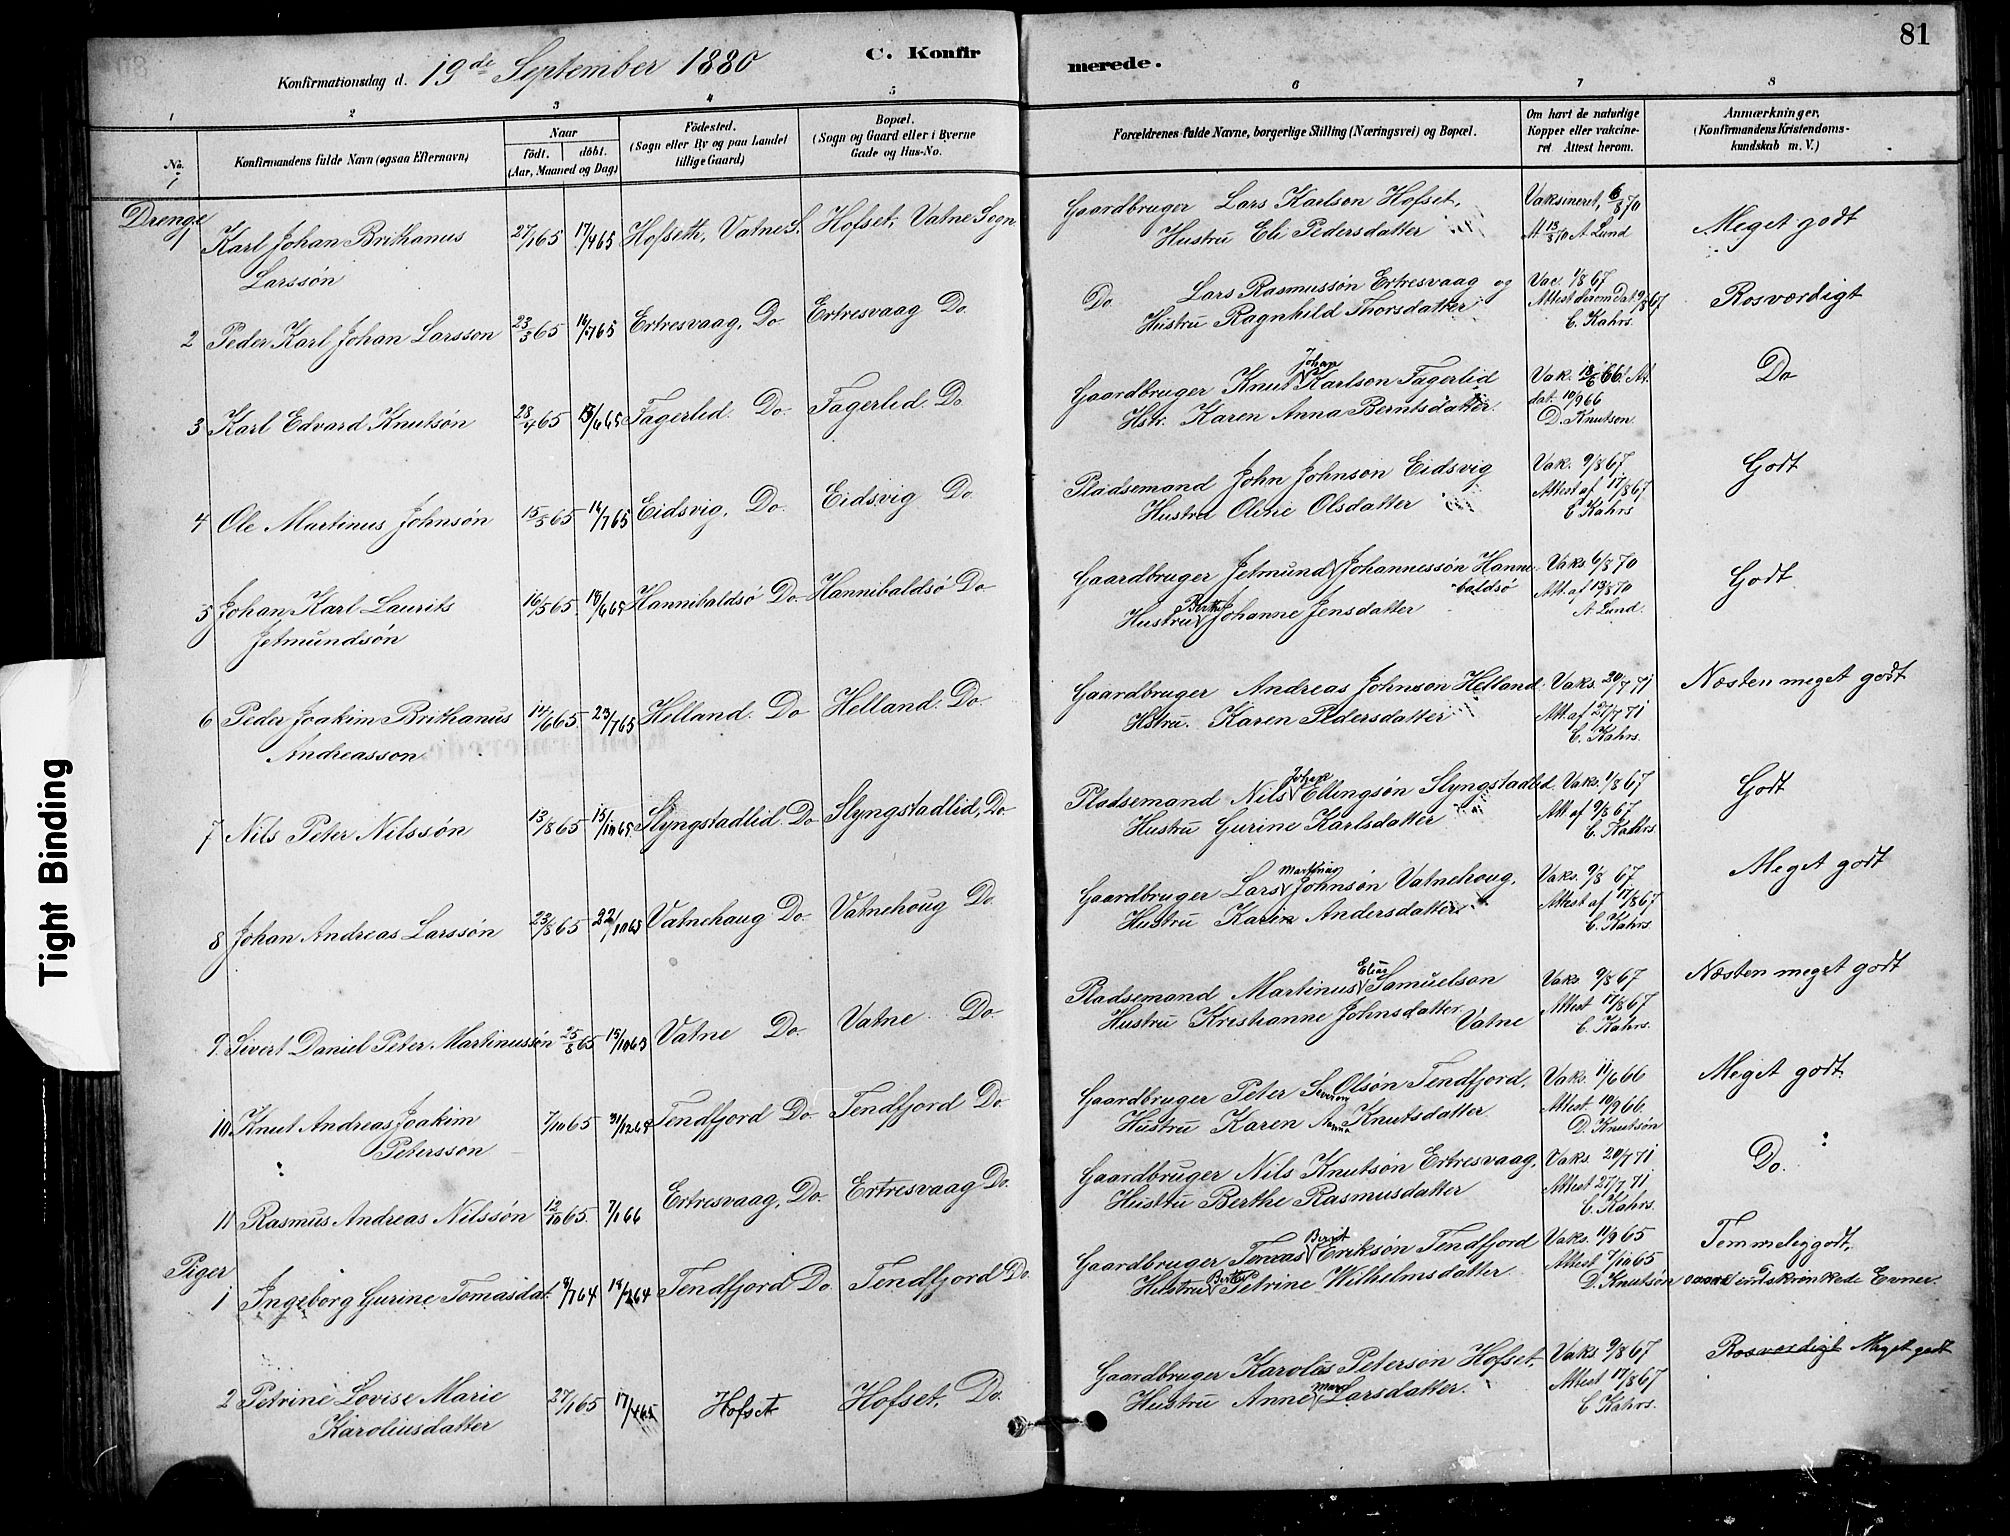 81
Konfirmationsdag d. 19de September 1880
C. Konfirmerede.
1 2 3 4 5 6 7 8
No.
Konfirmandens fulde Navn (ogsaa Efternavn)
Naar
födt. döbt.
(Aar, Maaned og Dag)
Födested.
(Sogn eller By og paa Landet
tillige Gaard)
Bopæl.
(Sogn og Gaard eller i Byerne
Gade og Hus-No.
Forældrenes fulde Navne, borgerlige Stilling (Næringsvei) og Bopæl.
Om havt de naturlige
Kopper eller vakcine-
ret Attest herom.
Anmærkninger,
(Konfirmandens Kristendoms-
kundskab m. V.)
Drenge
1 Karl Johan Brithanus 27/1 65 17/4 65 Hofseth, Vatne S. Hofset, Vatne Sogn
Larssön
Gaardbruger Lars Karlson Hofset,
Hustru Eli Pedersdatter
Vaksineret, 6/8 70
At. 13/8 70 A Lund
Meget godt
2 Peder Karl Johan Larsson 23/3 65 16/7 65 Ertresvaag, Do Ertresvaag Do.
Do. Lars Rasmussön Ertresvaag og
Hustru Ragnhild Thorsdatter
Vac. 1/8 67
Attest derom Dat. 9/8 67
C. Kahrs.
Rosværdigt
3 Karl Edvard Knutsön 28/4 65 13/6 65 Fagerlid. Do. Fagerlid. Do
Gaardbruger Knut Johan Karlson Fagerlid
Hstr. Karen Anna Berntsdatter.
Vak. 18/6 66. At.
dat. 10/9 66
D. Knutson
Do
4 Ole Martinus Johnsön 15/5 65 16/7 65 Eidsvig, Do. Eidsvig Do
Pladsemand John Johnson Eidsvig
Hustru Oline Olsdatter
Vak. 9/8 67.
Attest af 17/8 67
C Kahrs
Godt
5 Johan Karl Laurits 16/5 65 18/6 65 Hannibaldsö Do. Hannibaldsö Do
Jetmundsön
Gaardbruger Jetmund Johannessön Hanne-
baldsö
Hustru Berthe Johanne Jensdatter
Vaks 6/8 70
Att. af 13/8 70
A. Lund.
Godt
6 Peder Joakim Brithanus 14/6 65. 23/7 65 Helland. Do Helland. Do.
Andreasson
Gaardbruger Andreas Johnson Helland.
Hstru. Karen Pedersdatter
Vaks. 20/7 71
Att. af 27/7 71
C. Kahrs.
Næsten meget godt
7 Nils Peter Nilssön 13/8 65 15/10 65. Slyngstadlid Do Slyngstadlid, Do.
Pladsemand Nils Johan Ellingsön Slyngstadlid
Hustru Gurine Karlsdatter
Vaks. 1/8 67
Att af 9/8 67.
C. Kahrs.
Godt
8 Johan Andreas Larssön 23/8 65 22/10 65 Vatnehaug Do. Vatnehoug Do.
Gaardbruger Lars Johnsön Vatnehoug,
Hustru Karin Andersdatter
Vaks. 9/8 67
Attest af 17/8 67
C. Kahrs.
Meget godt
9 Sivert Daniel Peter Martinussön 25/8 65 15/10 65 Vatne Do. Vatne Do.
Pladsemand Martinus Elias Samuelson
Hustru Kristianne Johnsdatter Vatne
Vaks. 9/8 67
Attest 17/8 67
C. Kahrs.
Næsten meget godt
10 Knut Andreas Joakim 7/10 65 31/12 64 Tendfjord Do. Tendfjord Do.
Petersson
Gaardbruger Peter Severin Olsön Tendfjord,
Hustru Karen Anna Knutsdatter
Vaks. 11/6 66
Attest 10/9 66.
D. Knutsön
Meget godt.
11 Rasmus Andreas Nilssön 12/10 65. 7/1 66 Ertresvaag, Do. Ertresvaag Do.
Gaardbruger Nils Knutsön Ertresvaag,
Hustru Berthe Rasmusdatter
Vaks. 20/7 71
Attest 27/7 71.
C. Kahrs.
Do.
Piger
1 Ingeborg Gurine Tomasdat. Tendfjord Do. Tendfjord Do.
Gaardbruger Tomas Bernt Eriksön Tendfjord
Hustru Berthe Petrine Wilhelmsdatter.
Vaks. 11/9 65
Attest 7/10 65
D. Knutsön
Temmelig godt,
indskrænkede Evner.
2 Petrine Lovise Marie 27/1 65 17/4 65 Hofset Hofset, Do.
Karoliusdatter
Gaardbruger Karolus Peterson Hofset.
Hustru Anne Larsdatter.
Vaks 9/8 67
Attest 17/8 67
C Kahrs.
Rosværdigt Meget godt
Tight Binding